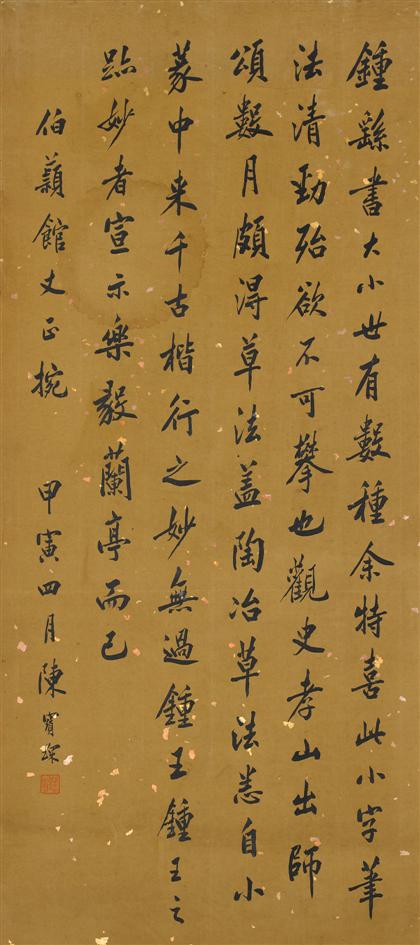 鍾繇書大小世有數種余特喜此小字筆
法清勁殆欲不可攀也觀史孝山出師
頌數月頗淂草法盖陶冶草法悉自小
篆中来千古楷行之妙無過鍾王鍾王之
跡妙者宣示樂毅蘭亭而已
伯館丈正捥 甲寅四月陳寶琛